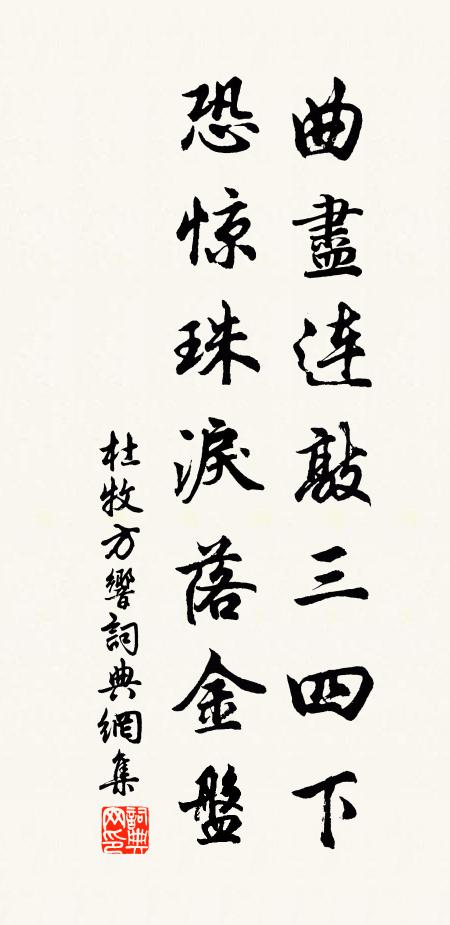 曲盡连敲三四下
恐惊珠淚落金盤
杜牧方響詞典網集
詞典网印